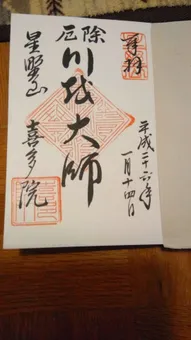 奉拝
平成二十六年
一月十四日
厄除
川越大師
星野山
喜多院